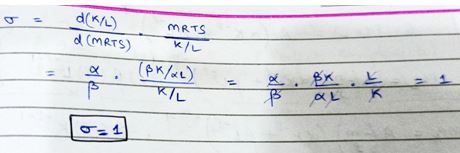 σ = d(K/L) / d(MRTS) · MRTS / K/L
= α/β · (βK/αL) / K/L = α/β · βK/αL · L/K = 1
σ = 1